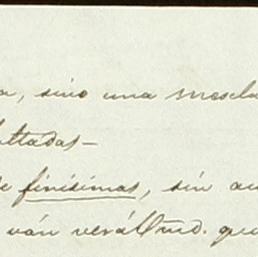 a, sino una mescla
ultadas—
e finísimas, sin au
ván verá Vmd. que